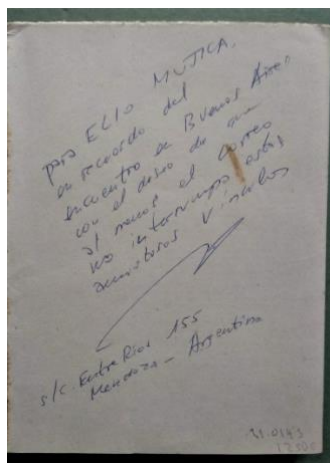 para ELIO MUJICA.
en recuerdo del
encuentro en Buenos Aires
con el deseo de que
al menos el correo
no interrumpa estos
amistosos vínculos
s/c. Entre Rios 155
Mendoza - Argentina